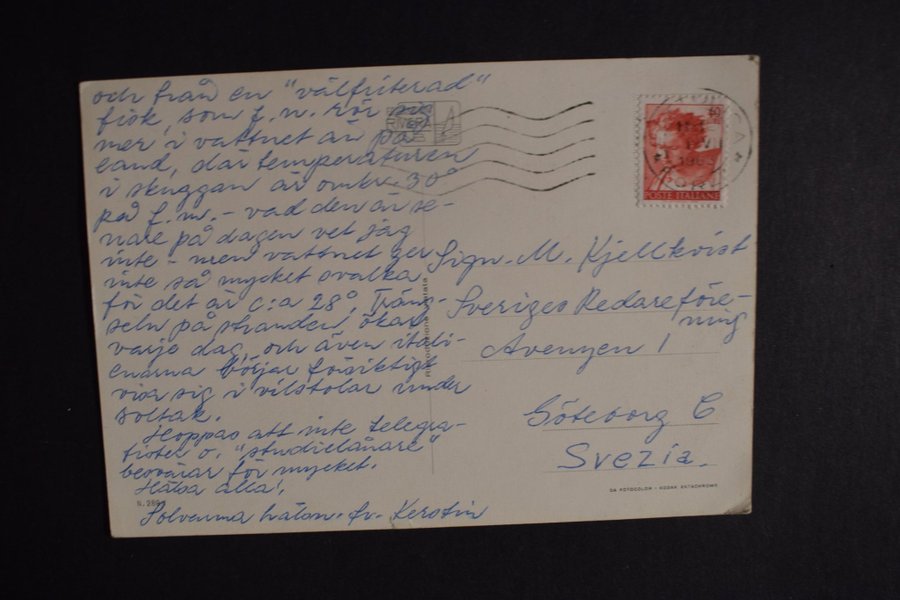 och från en "välfriterad"
fisk, som f.n. rör sig
mer i vattnet än på
land, där temperaturen
i skuggan är omkr. 30°
på f.m. - vad den är se-
nare på dagen vet jag
inte - men vattnet ger
inte så mycket svalka
för det är c:a 28°. Träng-
seln på stranden ökar
varje dag, och även itali-
enarna börjar försiktigt
visa sig i vilstolar under
soltak.
Hoppas att inte telegra-
fister o. "studielånare"
besvärar för mycket.
Hälsa alla!
Solvarma häls. fr. Kerstin
N. 289
RIVIERA
40
POSTE ITALIANE
Sign. M. Kjellkvist
Sveriges Redareföre-
ning
Avenyen 1
Göteborg C
Svezia.
DA FOTOCOLOR - KODAK EKTACHROME